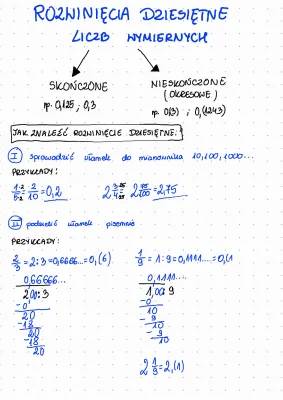 ROZWINIĘCIA DZIESIĘTNE
LICZB WYMIERNYCH
SKOŃCZONE
np. 0,125 ; 0,3
NIESKOŃCZONE
(OKRESOWE)
np. 0,(3) ; 0,(1243)
JAK ZNALEŹĆ ROZWINIĘCIE DZIESIĘTNE:
I sprowadzić ułamek do mianownika 10, 100, 1000...
PRZYKŁADY:
1·2/5·2 = 2/10 = 0,2
2 3·25/4·25 = 2 75/100 = 2,75
II podzielić ułamek pisemnie
PRZYKŁADY:
2/3 = 2:3 = 0,6666... = 0,(6)
0,66666...
2,00:3
-0
20
-18
20
-18
20
1/9 = 1:9 = 0,1111... = 0,(1
0,1111...
1,00:9
-0
10
-9
10
-9
10
2 1/9 = 2,(1)